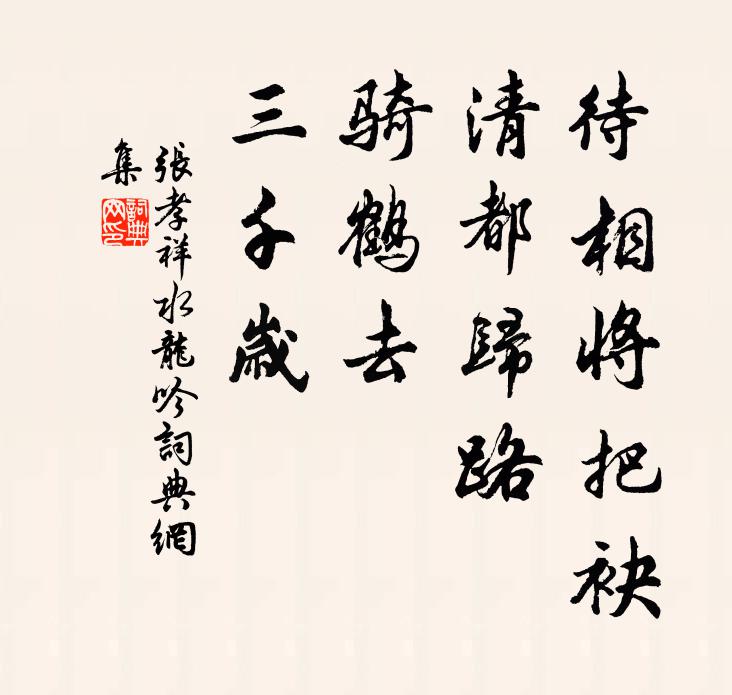 待相将把袂
清都歸路
骑鹤去
三千歲
張孝祥水龍吟詞典網
集
詞典
网印